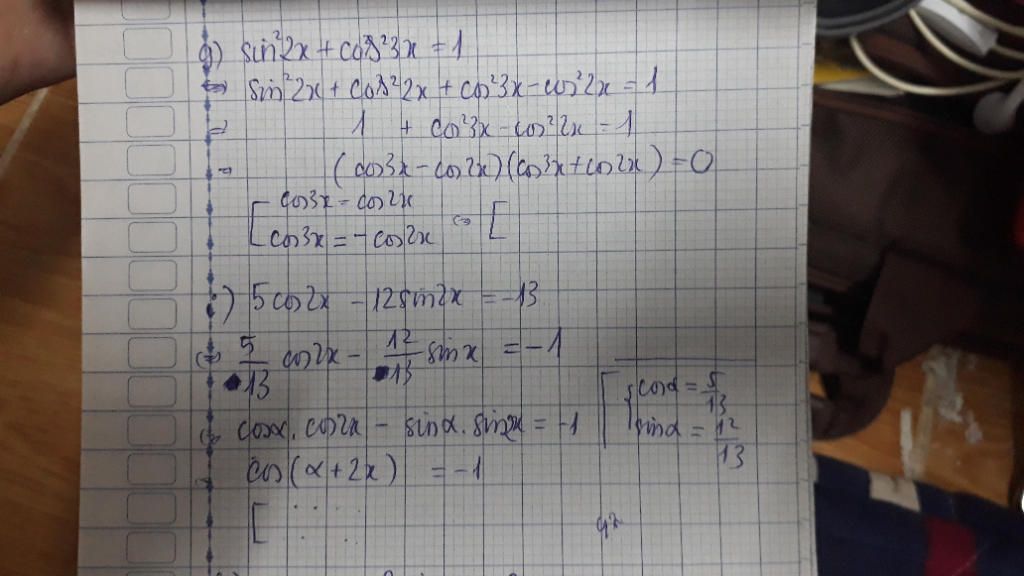 g) sin²2x + cos²3x = 1
⇔ sin²2x + cos²2x + cos²3x - cos²2x = 1
⇔ 1 + cos²3x - cos²2x = 1
⇔ (cos3x - cos2x)(cos3x + cos2x) = 0
[ cos3x = cos2x
cos3x = -cos2x ⇔ [
) 5cos2x - 12sin2x = -13
⇔ 5/13 cos2x - 12/13 sinx = -1
[ { cosα = 5/13
sinα = 12/13
⇔ cosα. cos2x - sinα. sin2x = -1
cos(α + 2x) = -1
[ . . . . .